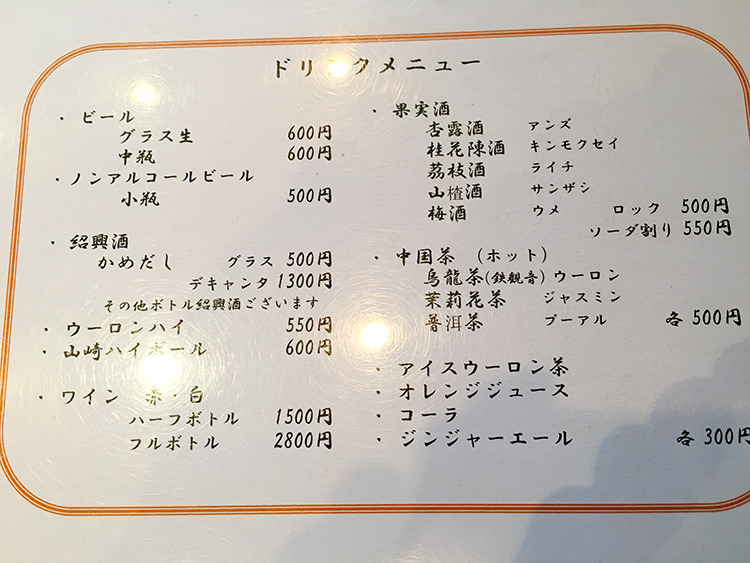 ドリンクメニュー
・ビール
グラス生 600円
中瓶 600円
・ノンアルコールビール
小瓶 500円
・紹興酒
かめだし グラス 500円
デキャンタ 1300円
その他ボトル紹興酒ございます
・ウーロンハイ 550円
・山崎ハイボール 600円
・ワイン 赤・白
ハーフボトル 1500円
フルボトル 2800円
・果実酒
杏露酒 アンズ
桂花陳酒 キンモクセイ
茘枝酒 ライチ
山楂酒 サンザシ
梅酒 ウメ ロック 500円
ソーダ割り 550円
・中国茶 (ホット)
烏龍茶(鉄観音) ウーロン
茉莉花茶 ジャスミン
普洱茶 プーアル 各 500円
・アイスウーロン茶
・オレンジジュース
・コーラ
・ジンジャーエール 各 300円